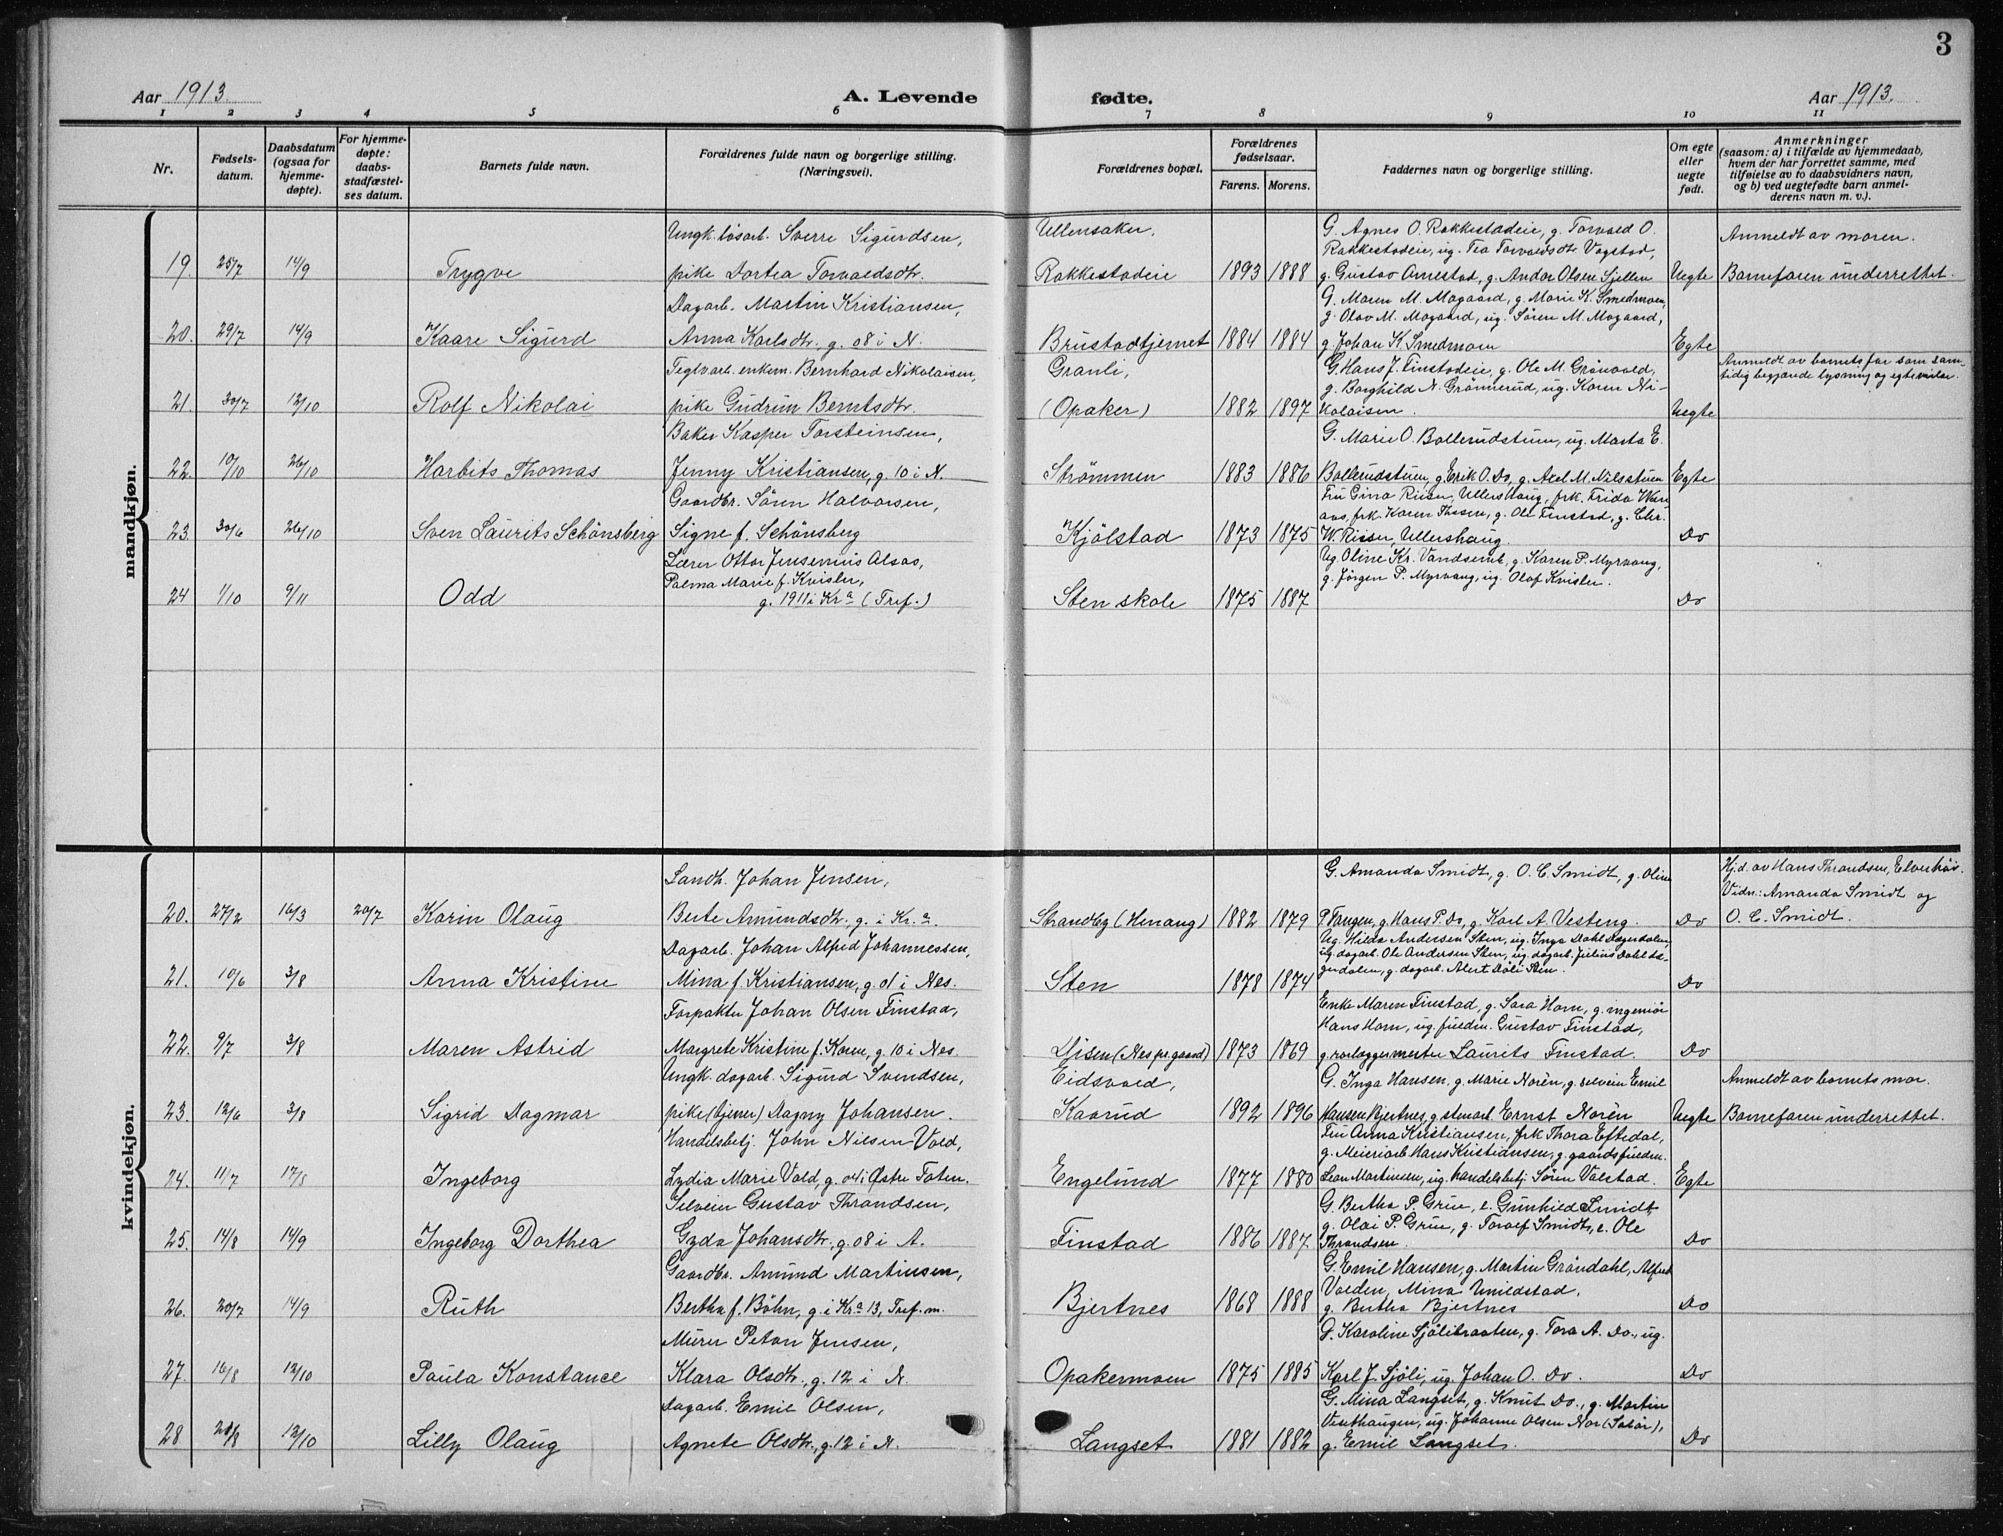 3
Aar 1913. A. Levende fødte. Aar 1913.
1 2 3 4 5 6 7 8 9 10 11
Nr.
Fødsels-
datum.
Daabsdatum
(ogsaa for
hjemme-
døpte).
For hjemme-
døpte:
daabs-
stadfæstel-
ses datum.
Barnets fulde navn.
Forældrenes fulde navn og borgerlige stilling.
(Næringsvei).
Forældrenes bopæl.
Forældrenes
fødselsaar.
Farens. Morens.
Faddernes navn og borgerlige stilling.
Om egte
eller
uegte
født.
Anmerkninger
(saasom: a) i tilfælde av hjemmedaab,
hvem der har forrettet samme, med
tilføielse av to daabsvidners navn,
og b) ved uegtefødte barn anmel-
derens navn m. v.).
mandkjøn.
19. 25/7 14/9 Trygve
Ungk. løsarb. Sverre Sigurdsen,
pike Dortea Torvaldsdtr.
Ullensaker.
Rakkestadeie 1893 1888
G. Agnes O. Rakkestadeie, g. Torvald O.
Rakkestadeie, ug. Tea Torvaldsdtr. Vogstad,
g. Gustav Arnestad, g. Andor Olsen Sjellen
Uegte
Anmeldt av moren.
Barnefaren underrettet.
20. 29/7 14/9 Kaare Sigurd
Dagarb. Martin Kristiansen,
Anna Karlsdtr., g. 08 i N.
Brustadtjernet 1884 1884
G. Maren M. Mogaard, g. Marie K. Smedmoen,
g. Olav M. Mogaard, ug. Søren M. Mogaard,
g. Johan K. Smedmoen
Egte
21. 30/7 12/10 Rolf Nikolai
Teglvarb. enkem. Bernhard Nikolaisen,
pike Gudrun Berntsdtr.
Granli,
(Opaker) 1882 1897
G. Hans J. Finstadeie, g. Ole M. Grønvold,
g. Borghild N. Grønnerud, ug. Karen Ni-
kolaisen.
Uegte
Anmeldt av barnets far som sam-
tidig begjærte lysning og egtevielse.
22. 10/10 26/10 Harbits Thomas
Baker Kasper Torsteinsen,
Jenny Kristiansen, g. 10 i N.
Strømmen 1883 1886
G. Marie O. Bollerudstuen, ug. Marta E.
Bollerudstuen, g. Erik O. Do, g. Axel M. Nilsstuen
Egte
23. 30/6 26/10 Sven Laurits Schönsberg
Gaardbr. Søren Halvorsen,
Signe f. Schönsberg
Kjølstad 1873 1875
Fru Gina Riiser, Ullershaug, frk. Frida
frk. Karen Thesen, g. Ole Finstad, g. Chr.
W. Riiser, Ullershaug
Do
24 1/10 9/11 Odd
Lærer Ottar Jensenius Alsos,
Palma Marie f. Kvisler,
g. 1911 i Kra (Tref.)
Sten skole 1875 1887
Ug. Oline Kr. Vandsemb, g. Karen P. Myrvang,
g. Jørgen P. Myrvang, ug. Olaf Kvisler.
Do
kvindekjøn.
20. 27/2 16/3 20/7 Karin Olaug
Landh. Johan Jensen,
Berte Amundsdtr. g. i Kra.
Strandby (Henaug) 1882 1879
G. Amanda Smidt, g. O. C. Smidt, g. Oline
P. Tangen, g. Hans P. Do, g. Karl A. Vesteng.
Do
Hjd. av Hans Throndsen, Elverhøi.
Vidn.: Amanda Smidt og
O. C. Smidt.
21. 10/6 3/8 Anna Kristine
Dagarb. Johan Alfred Johannessen,
Mina f. Kristiansen, g. 01 i Nes.
Sten 1878 1874
Ug. Hilda Andersen Sten, ug. Inga Dahl Dagerdalen,
ug. dagarb. Ole Andersen Sten, ug. dagarb. Julius Dahl Da-
gerdalen, g. dagarb. Alert Döli Sten.
Do
22. 9/7 3/8 Maren Astrid
Forpakter Johan Olsen Finstad,
Margrete Kristine f. Koren, g. 10 i Nes.
Disen (Nes pr.gaard) 1873 1869
Enke Maren Finstad, g. Sara Horn, g. ingeniør
Hans Horn, ug. fuldm. Gustav Finstad,
g. rørlæggermester Laurits Finstad.
Do
23. 12/6 3/8 Sigrid Dagmar
Ungk. dagarb. Sigurd Svendsen,
pike (tjener) Dagny Johansen.
Eidsvold,
Kaarud 1892 1896
G. Inga Hansen, g. Marie Norén, g. selveier Emil
Hansen Bjertnes, g. stenarb. Ernst Norén
Uegte
Anmeldt av barnets mor.
Barnefaren underrettet.
24. 11/7 17/8 Ingeborg
Handelsbetj. John Nilsen Vold,
Lydia Marie Vold, g. 04 i Østre Toten.
Engelund 1877 1880
Fru Anna Kristiansen, frk Thora Eftedal,
g. Meieriarb Hans Kristiansen, g. gaardsfuldm.
Lean Martinsen, ug. handelsbetj. Søren Valstad.
Egte
25. 14/8 14/9 Ingeborg Dorthea
Selveier Gustav Throndsen,
Gyda Johansdtr., g. 08 i A.
Finstad 1886 1887
G. Bertha P. Grue, e. Gunhild Smidt,
g. Olai P. Grue, g. Toralf Smidt, e. Ole
Throndsen.
Do
26. 20/7 14/9 Ruth
Gaardbr. Amund Martinsen,
Bertha f. Böhn, g. i Kra 13, Tref. m.
Bjertnes 1868 1888
G. Emil Hansen, g. Martin Grøndahl, Alfred
Volden, Mina Unildstad,
g. Bertha Bjertnes
Do
27. 16/8 12/10 Paula Konstance
Murer Peton Jensen,
Klara Olsdtr., g. 12 i N.
Opakermoen 1875 1885
G. Karoline Sjølibraaten, g. Tora A. Do., ug.
Karl J. Sjöli, ug. Johan O. Do.
Do
28 28/8 12/10 Lilly Olaug
Dagarb. Emil Olsen,
Agnete Olsdtr., g. 12 i N.
Langset 1881 1882
G. Mina Langset, g. Knut Do., g. Martin
Venthaugen, ug. Johanne Olsen Nor (Sabör),
g. Emil Langset.
Do